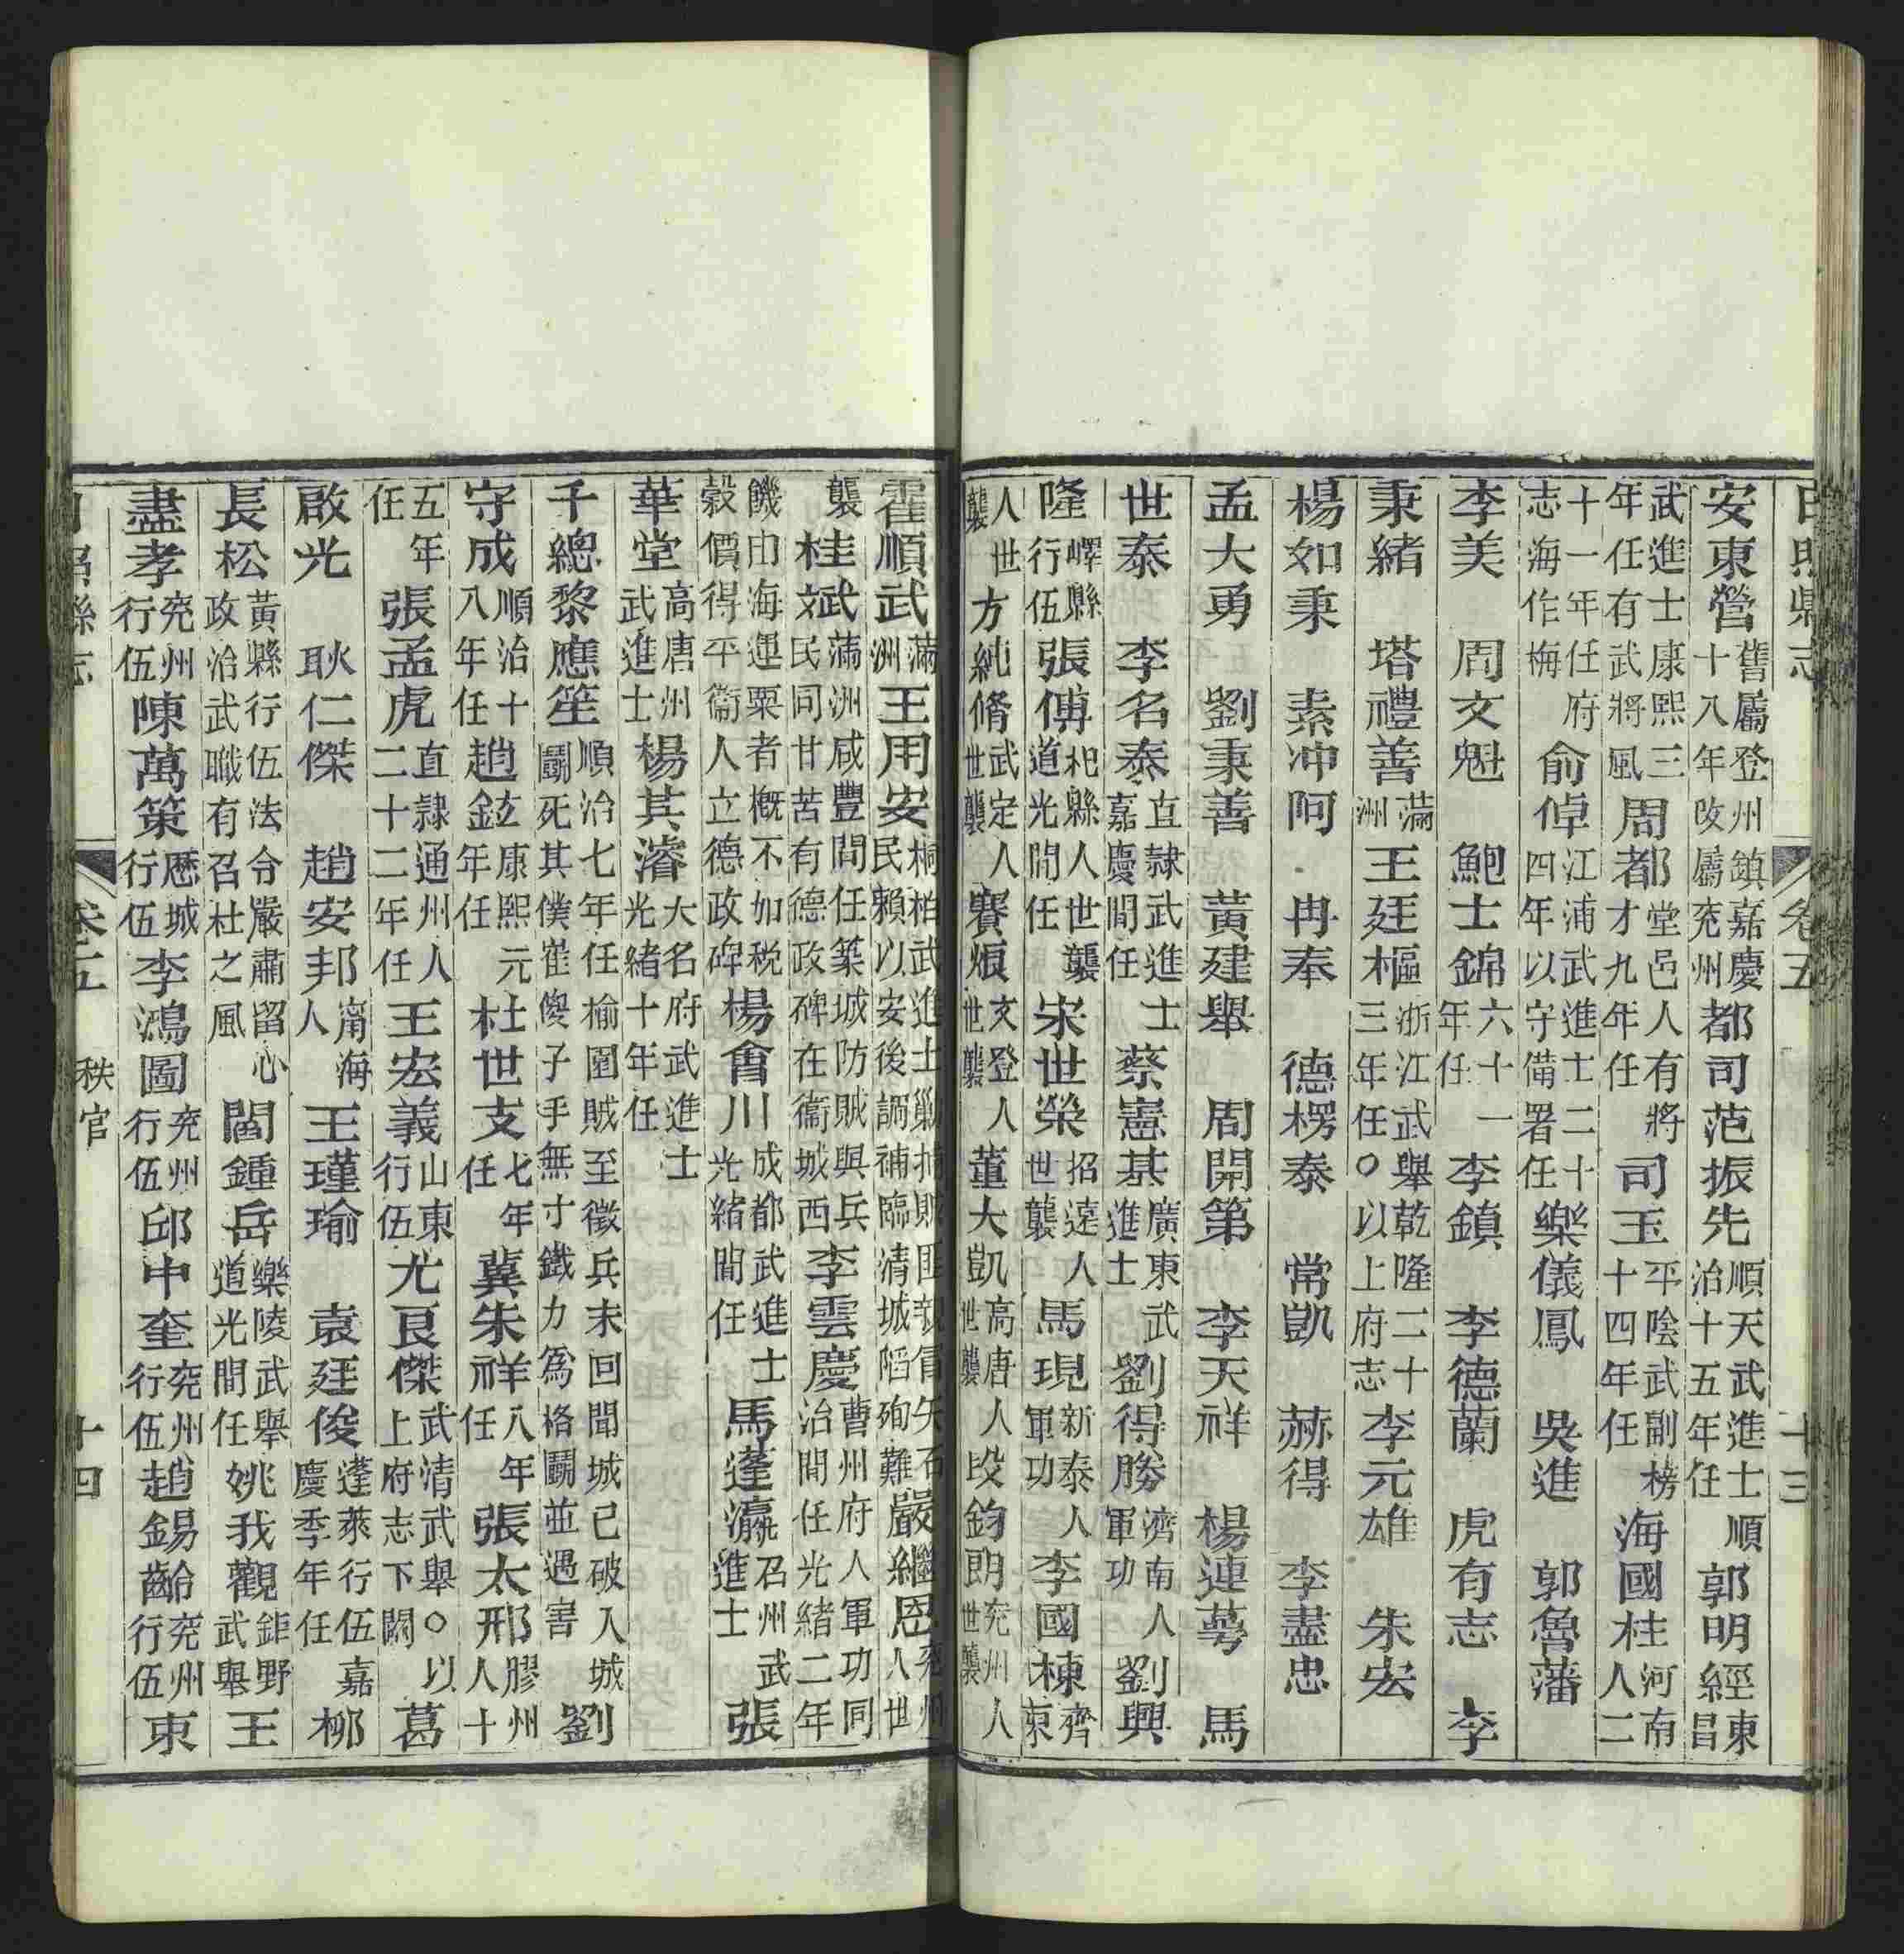 日照縣志 卷五 十三
安東營舊屬登州鎮嘉慶十八年改屬兖州都司范振先順天武進士順治十五年任郭明經東昌
武進士康熙三年任有武將風周都堂邑人有將才九年任司玉平陰武副榜十四年任海國柱河南人二
十一年任府志海作梅俞倬江浦武進士二十四年以守備署任樂儀鳳 吳進 郭魯藩
李美 周文魁 鮑士錦六十一年任李鎮 李德蘭 虎有志 李
秉緒 塔禮善滿洲王廷樞浙江武舉乾隆二十三年任○以上府志李元雄 朱宏
楊如秉 素冲阿 冉奉 德楞泰 常凱 赫得 李盡忠
孟大勇 劉秉善 黃建舉 周開第 李天祥 楊連萼 馬
世泰 李名泰直隸武進士嘉慶間任蔡憲基廣東武進士劉得勝濟南人軍功劉興
隆嶧縣行伍張傅杞縣人世襲道光間任宋世榮招遠人世襲馬現新泰人軍功李國棟齊東
人世襲方純脩武定人世襲賽烺文登人世襲董大凱高唐人世襲段鈞朗兖州人世襲
霍順武滿洲王用安桐柏武進士勦捕賊匪親冒矢石民賴以安後調補臨清城陷殉難嚴繼恩兖州人世
襲桂斌滿洲咸豐間任築城防賊與兵民同甘苦有德政碑在衞城西李雲慶曹州府人軍功同治間任光緒二年
饑由海運粟者概不如税穀價得平衞人立德政碑楊會川成都武進士光緒間任馬蓬瀛召州武進士張
華堂高唐州武進士楊其濬大名府武進士光緒十年任
千總黎應笙順治七年任榆園賊至徵兵未回聞城已破入城鬭死其僕崔傻子手無寸鐵力爲格鬭並遇害劉
守成順治十八年任趙鉉康熙元年任杜世支七年任冀朱祥八年任張太邢膠州人十
五年任張孟虎直隸通州人二十二年任王宏義山東行伍尤良傑武清武舉○以上府志下闕葛
啟光 耿仁傑 趙安邦甯海人王瑾瑜 袁廷俊蓬萊行伍嘉慶季年任柳
長松黃縣行伍法令嚴肅留心政治武職有召杜之風閻鍾岳樂陵武舉道光間任姚我觀鉅野武舉王
盡孝兖州行伍陳萬策歷城行伍李鴻圖兖州行伍邱中奎兖州行伍趙錫齡兖州行伍東
日照縣志 卷五 秩官 十四